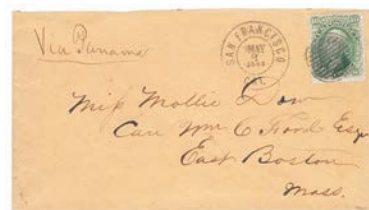 Via Panama
SAN FRANCISCO
MAY
CAL
Miss Mollie Dow
Care Wm C Ford Esqr
East Boston
Mass.